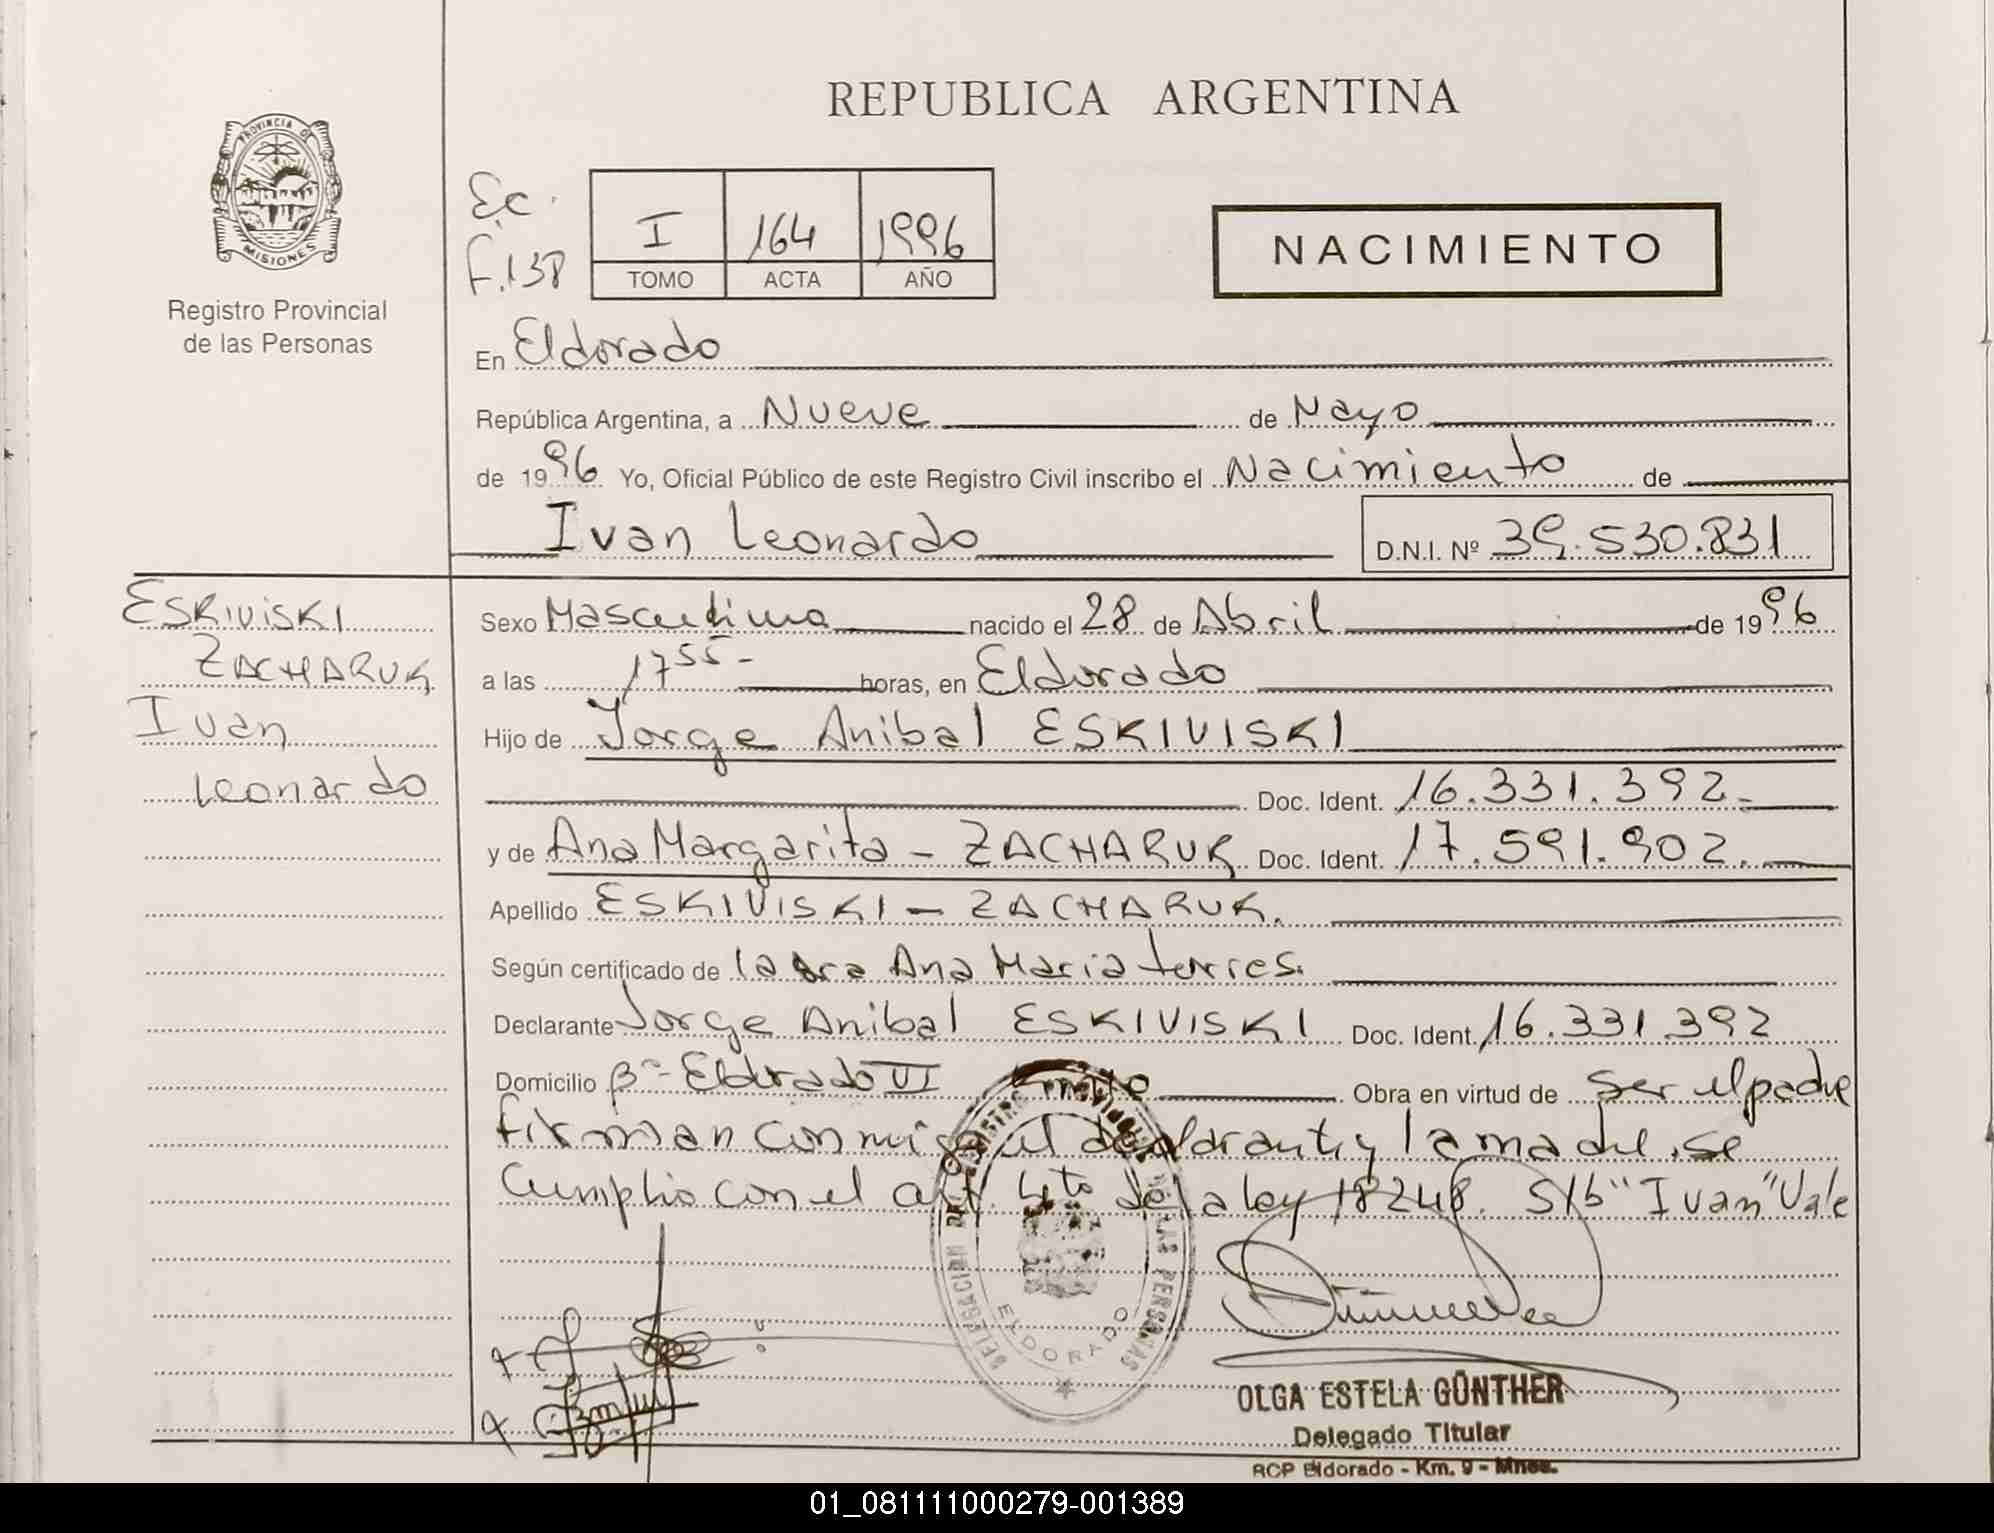 REPUBLICA ARGENTINA
PROVINCIA DE MISIONES
Registro Provincial
de las Personas
Ec.
F.138
I 164 1996
TOMO ACTA AÑO
NACIMIENTO
En Eldorado
República Argentina, a Nueve de Mayo
de 1996 Yo, Oficial Público de este Registro Civil inscribo el Nacimiento de
Ivan Leonardo D.N.I. Nº 39.530.831
ESKIVISKI
ZACHARUK
Ivan
Leonardo
Sexo Masculino nacido el 28 de Abril de 1996
a las 1755- horas, en Eldorado
Hijo de Jorge Anibal ESKIVISKI
Doc. Ident. 16.331.392.-
y de Ana Margarita - ZACHARUK Doc. Ident. 17.591.902.
Apellido ESKIVISKI - ZACHARUK.
Según certificado de la Dra Ana Maria Torres.
Declarante Jorge Anibal ESKIVISKI Doc. Ident. 16.331.392
Domicilio Bº- Eldorado VI Obra en virtud de ser el padre
firman conmigo el declarante y la madre. se
cumplio con el art. 4to de la ley 18248. S/b "Ivan" Vale
DELEGACION DE REGISTRO PROVINCIAL DE LAS PERSONAS
ELDORADO
OLGA ESTELA GÜNTHER
Delegado Titular
RCP Eldorado - Km. 9 - Mnes.
01_081111000279-001389